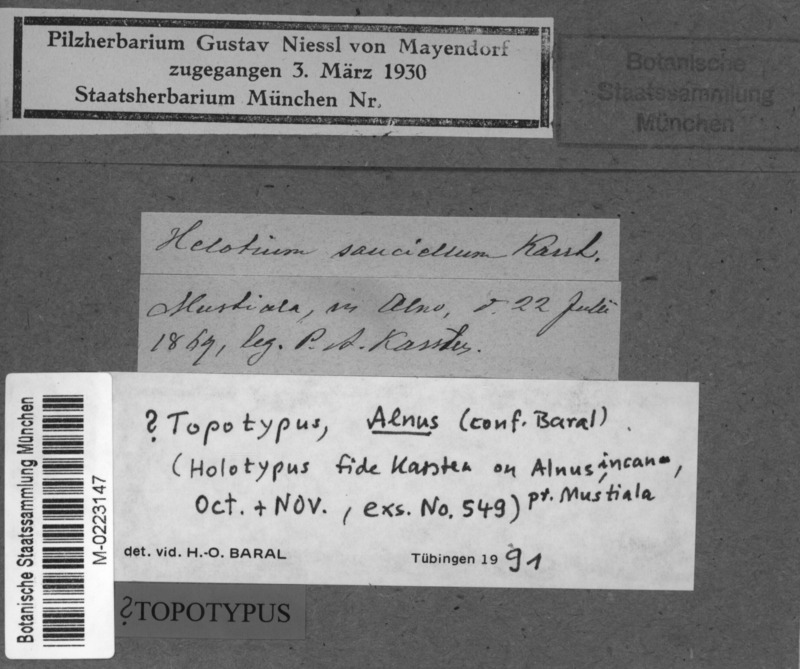 Pilzherbarium Gustav Niessl von Mayendorf
zugegangen 3. März 1930
Staatsherbarium München Nr.
Botanische
Staatssammlung
München
Helotium sauciellum Karst.
Mustiala, in Alno, d. 22 Julii
1869, leg. P. A. Karsten.
? Topotypus, Alnus (conf. Baral).
(Holotypus fide Karsten on Alnus incana,
Oct. + Nov., exs. No. 549) pr. Mustiala
det. vid. H.-O. BARAL Tübingen 1991
?TOPOTYPUS
Botanische Staatssammlung München
M-0223147